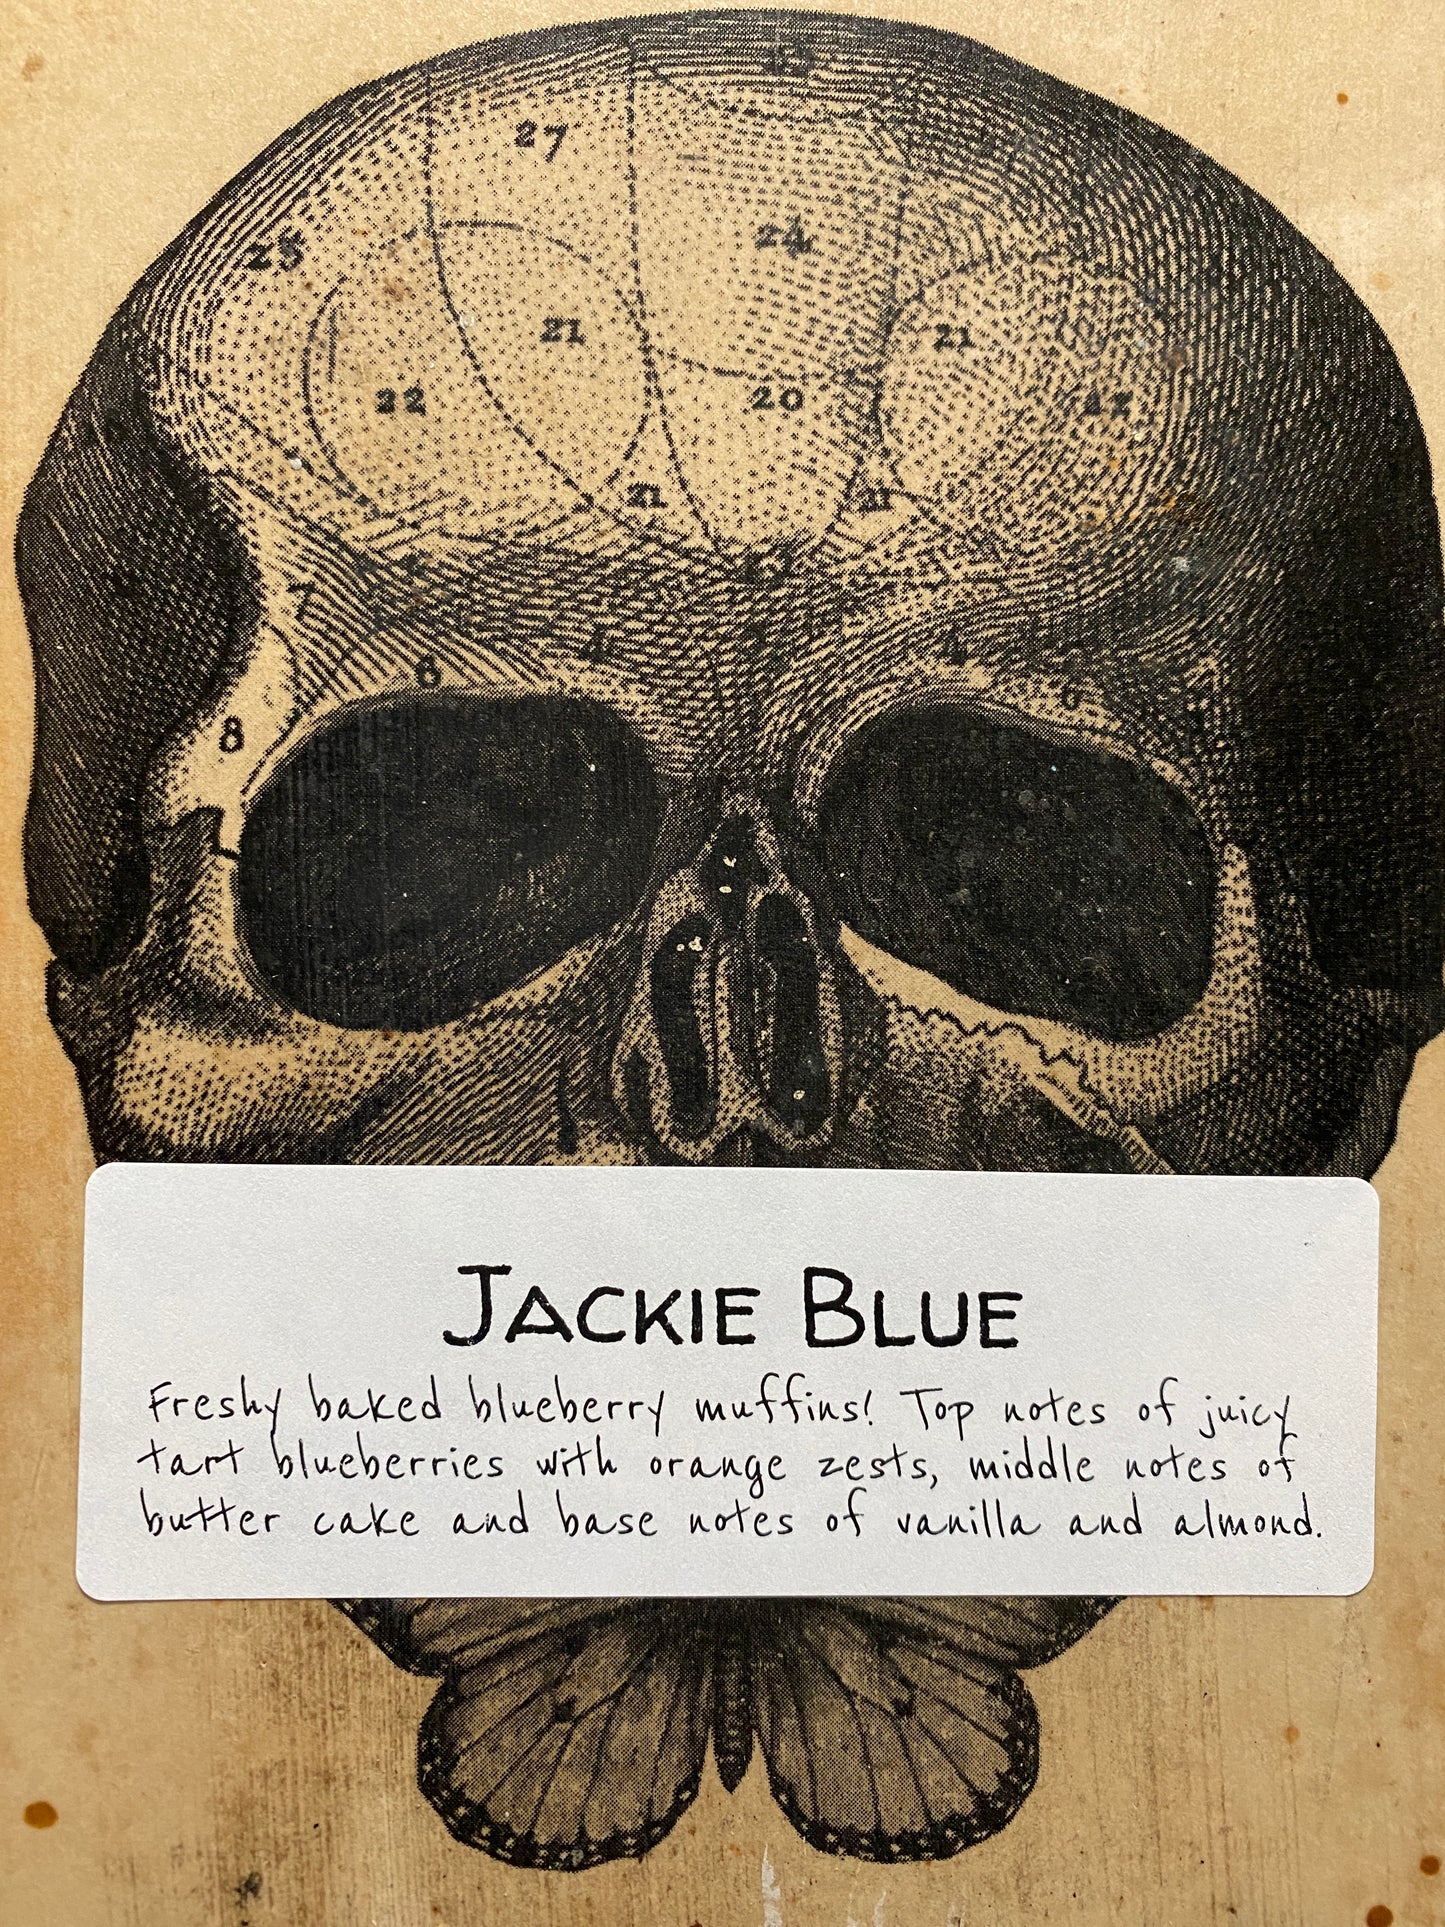 27
25
24
21
21
22
20
21
21
7
6
6
8
JACKIE BLUE
Freshy baked blueberry muffins! Top notes of juicy
tart blueberries with orange zests, middle notes of
butter cake and base notes of vanilla and almond.